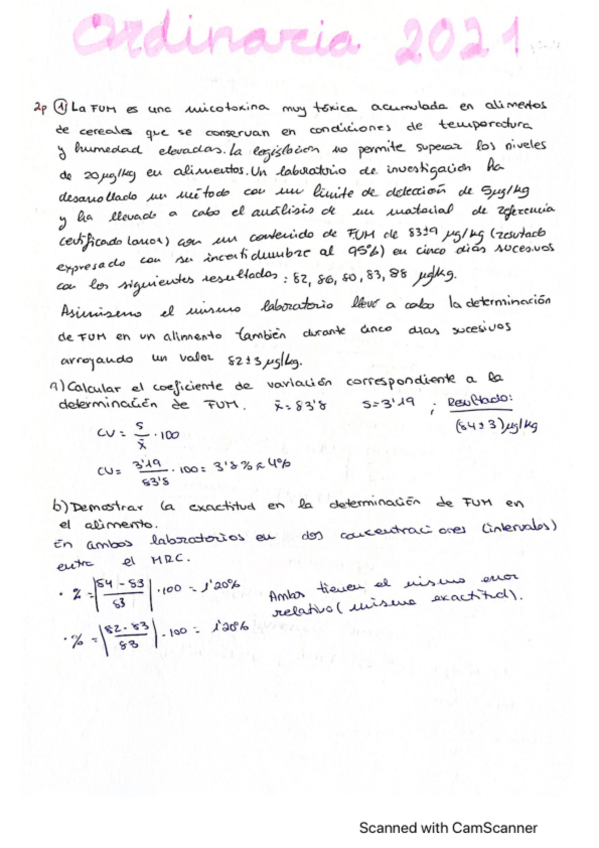 Ordinaria 2021
2p ① La FUM es una micotoxina muy tóxica acumulada en alimentos
de cereales que se conservan en condiciones de temperatura
y humedad elevadas. La legislación no permite superar los niveles
de 20 µg/kg en alimentos. Un laboratorio de investigación ha
desarrollado un método con un límite de detección de 5 µg/kg
y ha llevado a cabo el análisis de un material de referencia
certificado con un contenido de FUM de 83±9 µg/kg (resultado
expresado con su incertidumbre al 95%) en cinco días sucesivos
con los siguientes resultados: 82, 86, 80, 83, 88 µg/kg.
Asimismo el mismo laboratorio llevó a cabo la determinación
de FUM en un alimento también durante cinco días sucesivos
arrojando un valor 82±3 µg/kg.
a) Calcular el coeficiente de variación correspondiente a la
determinación de FUM. x̄ = 83'8 S = 3'19 ; Resultado:
(84±3) µg/kg
CV = S/x̄ · 100
CV = 3'19/83'8 · 100 = 3'8% ≈ 4%
b) Demostrar la exactitud en la determinación de FUM en
el alimento.
En ambos laboratorios en dos concentraciones (intervalos)
entra el MRC.
· % = |84 - 83 / 83| · 100 = 1'20%
Ambos tienen el mismo error
relativo (misma exactitud).
· % = |82 - 83 / 83| · 100 = 1'20%
Scanned with CamScanner